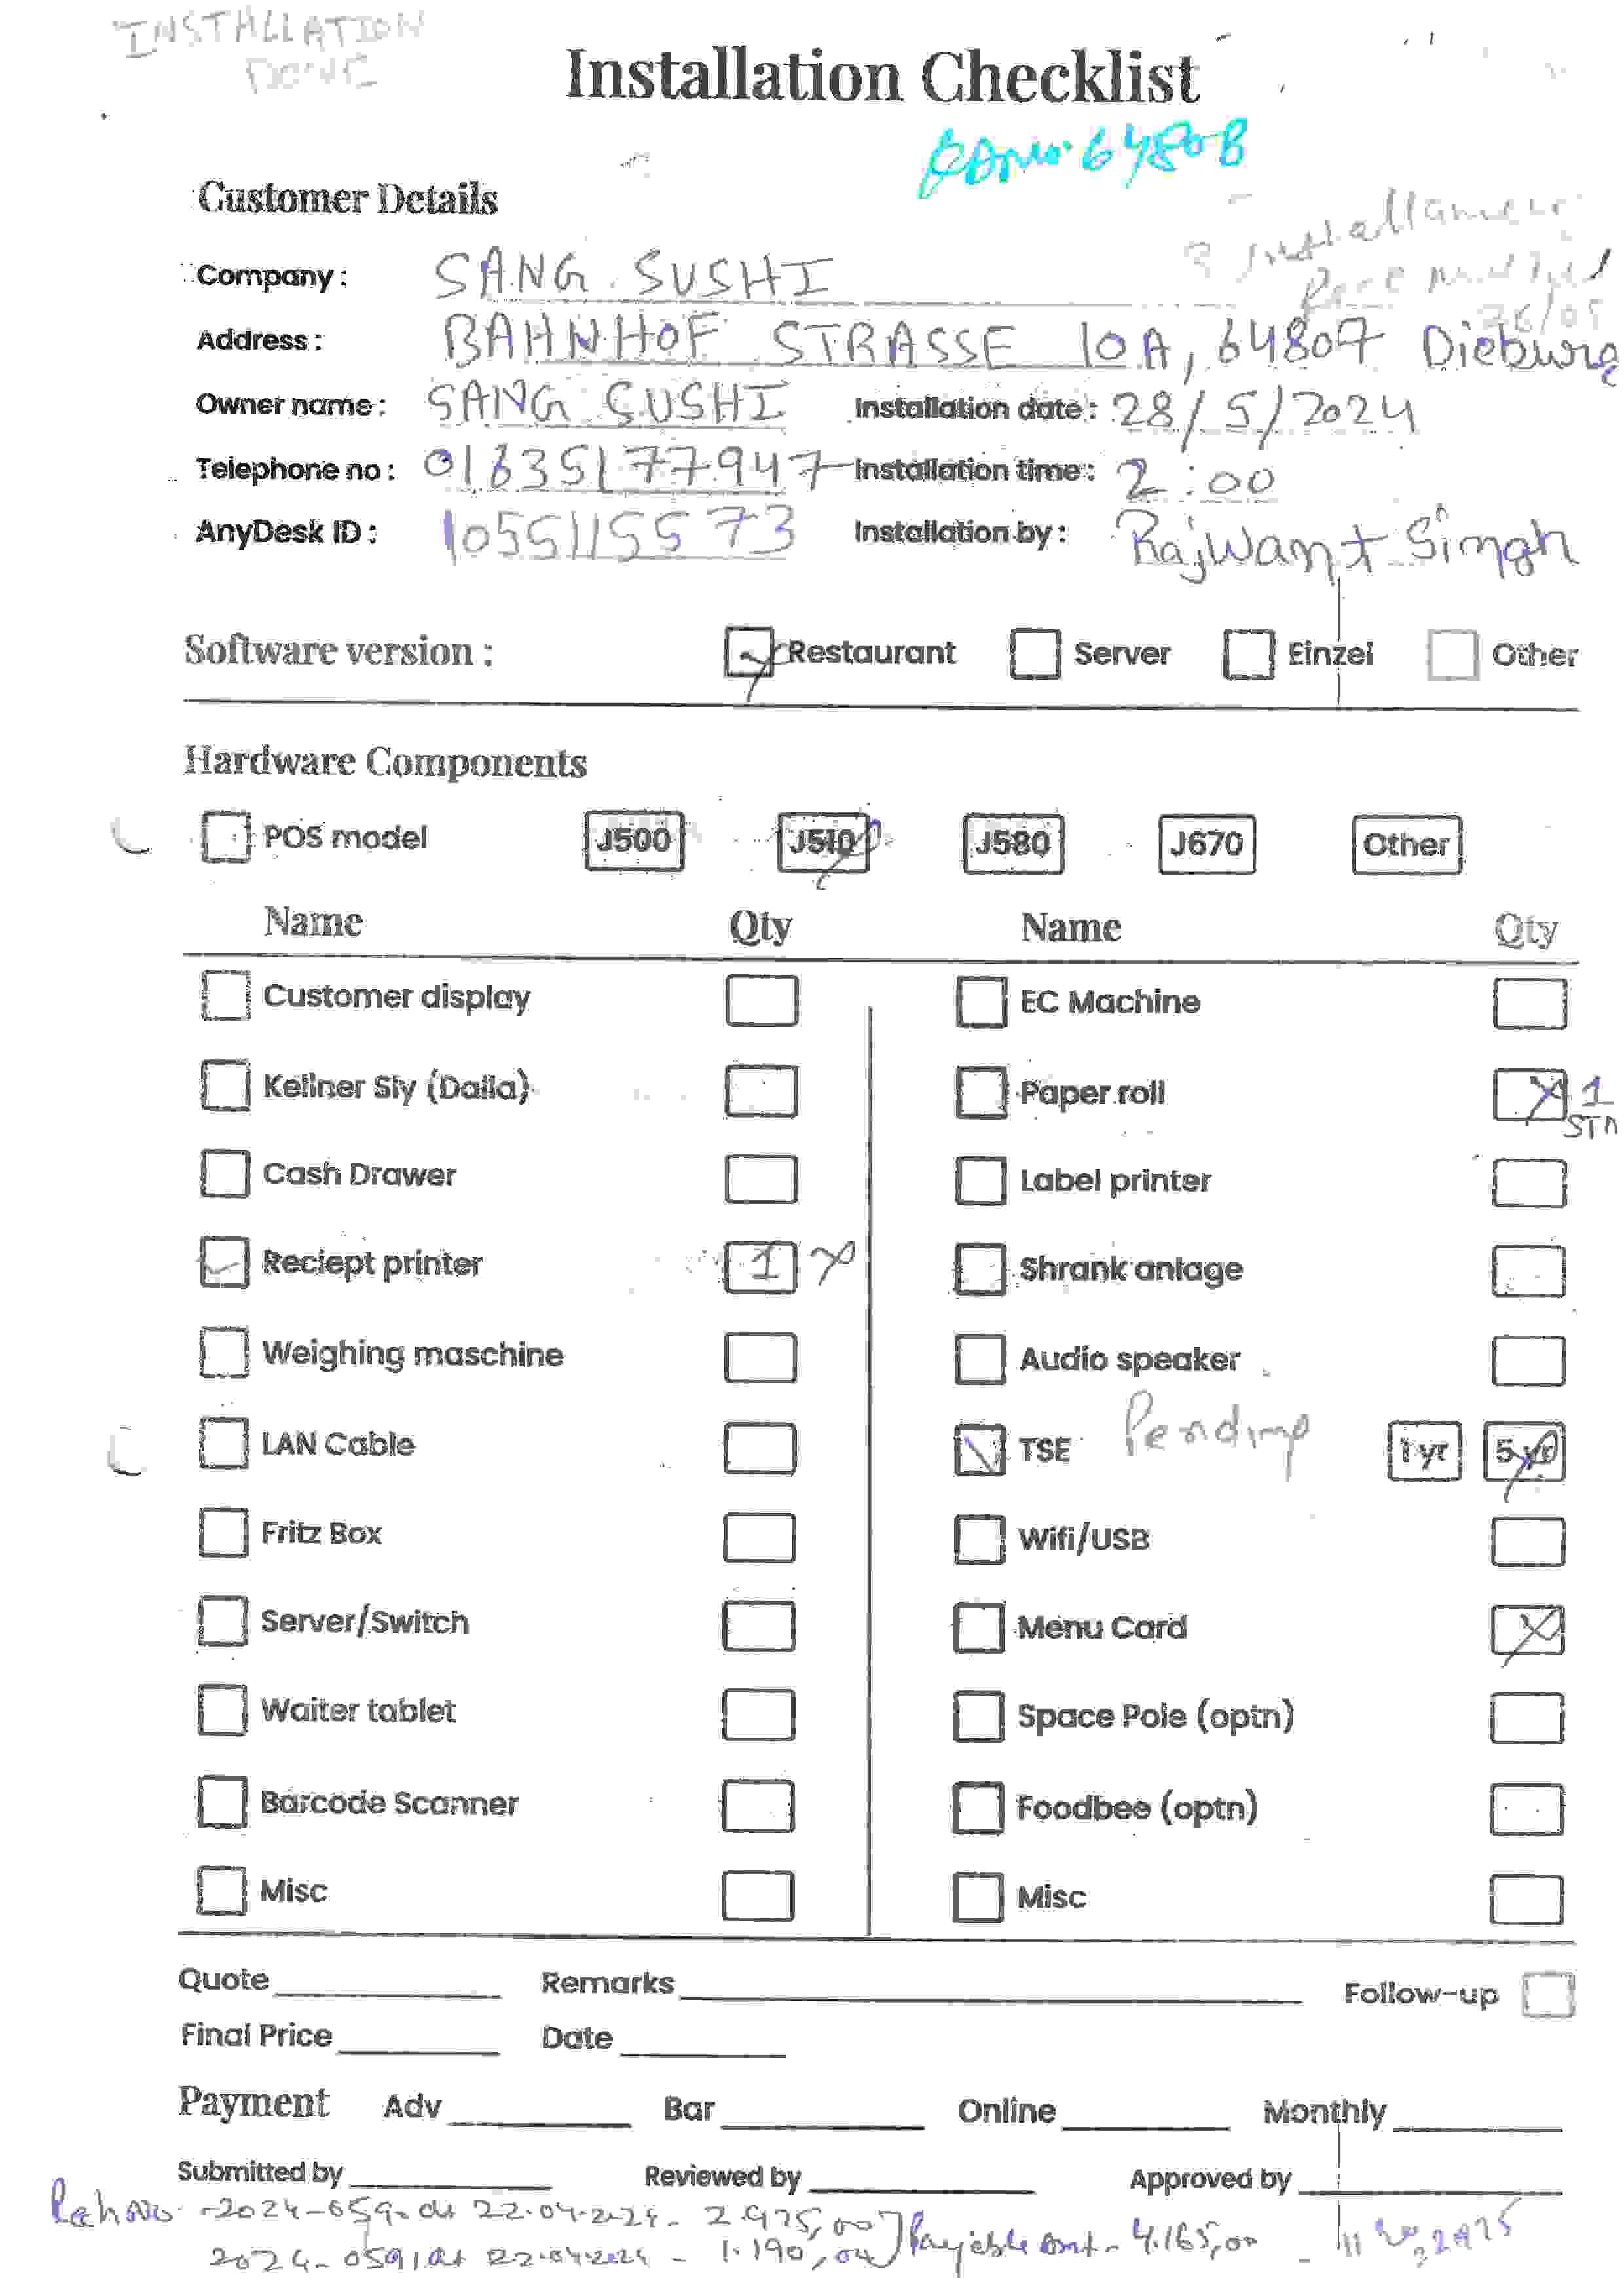 INSTALLATION
DONE
Installation Checklist
64808
Customer Details
3 Installament
Company : SANG SUSHI
26/05
Address : BAHNHOF STRASSE 10A, 64807 Dieburg
Owner name : SANG SUSHI Installation date : 28/5/2024
Telephone no : 01635177947 Installation time : 2:00
AnyDesk ID : 1055115573 Installation by : Rajwant Singh
Software version : Restaurant Server Einzel Other
Hardware Components
POS model J500 J510 J580 J670 Other
Name Qty Name Qty
Customer display EC Machine
Kellner Sly (Dalla) Paper roll 1
STA
Cash Drawer Label printer
Reciept printer 1 Shrank anlage
Weighing maschine Audio speaker
LAN Cable TSE Pending 1 yr 5 yr
Fritz Box Wifi/USB
Server/Switch Menu Card
Waiter tablet Space Pole (optn)
Barcode Scanner Foodbee (optn)
Misc Misc
Quote Remarks Follow-up
Final Price Date
Payment Adv Bar Online Monthly
Submitted by Reviewed by Approved by
2024-0590 dt 22.04.2024 - 2.975,00
2024-0591 dt 22.04.2024 - 1.190,00 Payable amt - 4.165,00